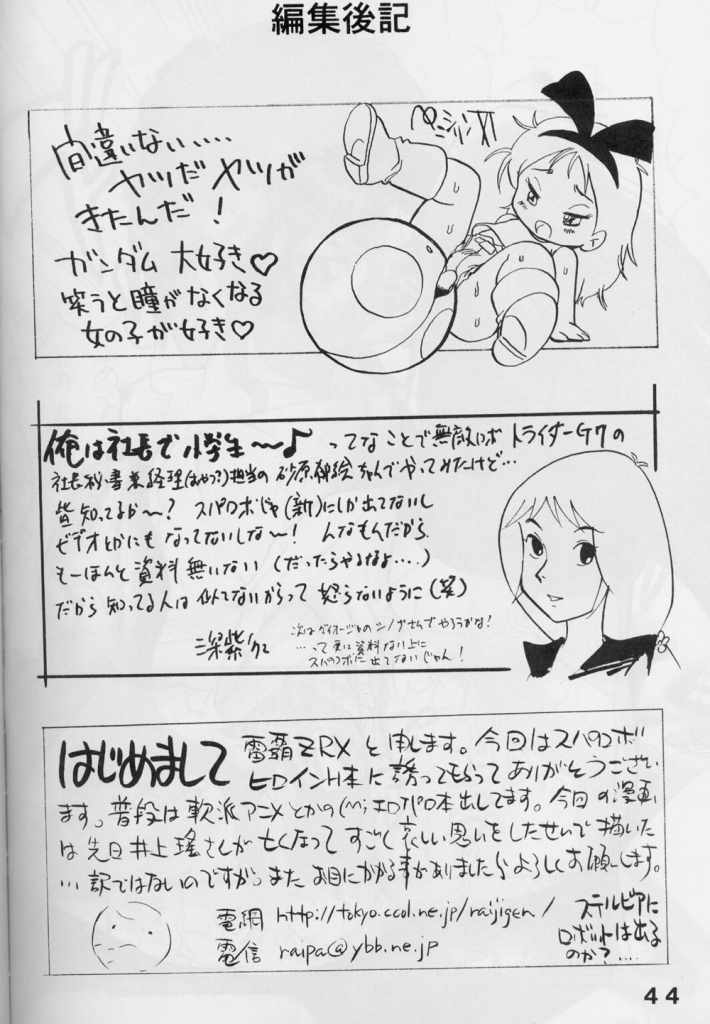 編集後記
間違いない‥‥
ヤツだ ヤツが
きたんだ！
ガンダム 大好き♡
笑うと瞳がなくなる
女の子が好き♡
俺は社長で小学生〜〜♪ ってなことで無敵ロボ トライダーG7の
社長秘書兼経理(だっけ?)担当の 砂原郁絵ちゃんでやってみたけど…
皆知ってるか〜？ スパロボじゃ(新)にしか出てないし
ビデオとかにもなってないしな〜！ んなもんだから
もーほんと資料無いない (だったらやるなよ‥‥)
だから知ってる人は似てないからって怒らないように(笑)
深紫
次はダイオージャのシノブさんでやろうかな！
…って更に資料ない上に
スパロボに出てないじゃん！
はじめまして 電覇ZRXと申します。今回はスパロボ
ヒロインH本に誘ってもらってありがとうござい
ます。普段は軟派アニメとかの エロパロ本出してます。今回の漫画
は先日井上瑤さんが亡くなってすごく哀しい思いをしたせいで描いた
…訳ではないのですがっまたお目にかかる事がありましたらよろしくお願いします。
電網 http://tokyo.cool.ne.jp/raijigen/
電信 raipa@ybb.ne.jp
ステルビアに
ロボットは出る
のか？‥‥
44